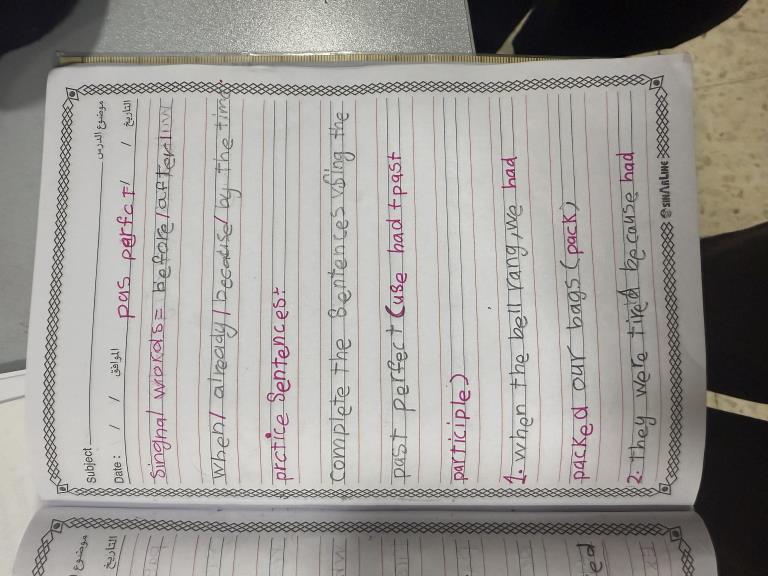 Subject موضوع الدرس
Date: / / الموافق / / التاريخ
pas perfct
Singnal words= before/after/
when/ already/because/ by the time.
prctice Sentences:
complete the Sentences Using the
past perfect (use had +past
participle)
1. when the bell rang, we had
packed our bags (pack)
2. They were tired because had
SINARLINE
موضوع
التاريخ
ed